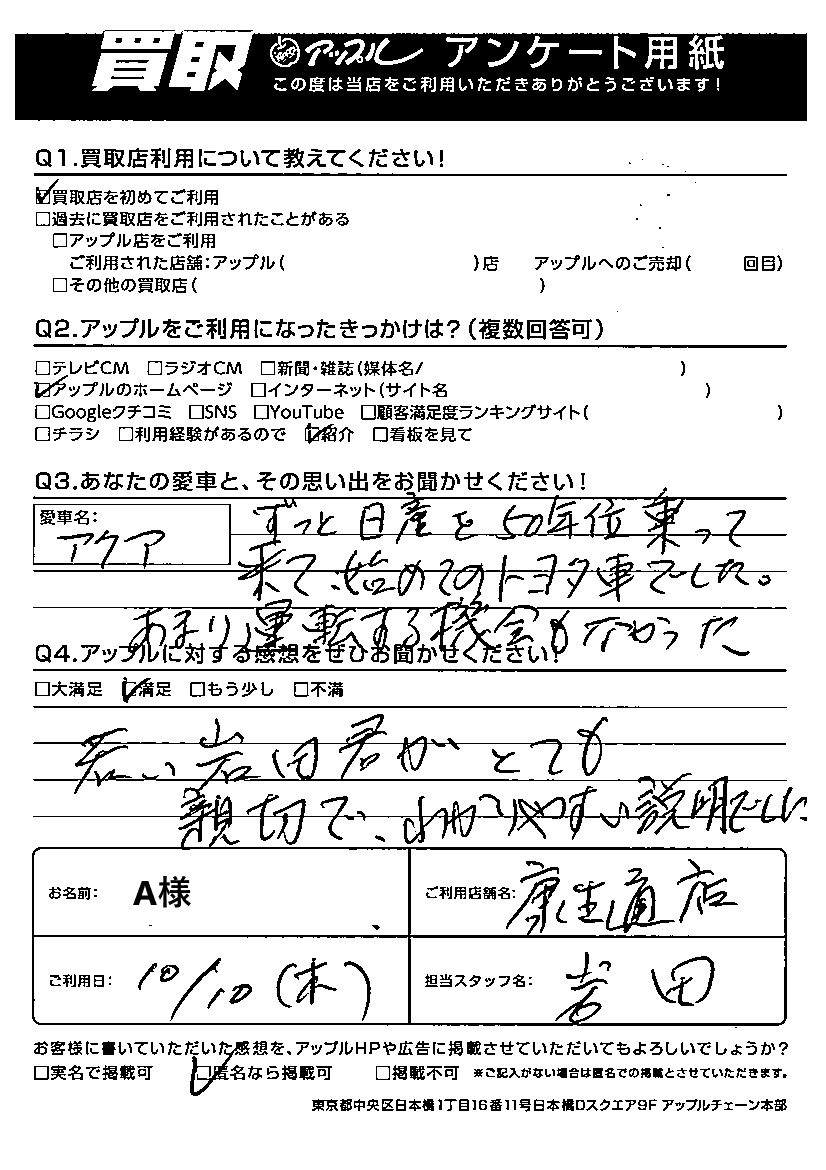 買取 アップル アンケート用紙
この度は当店をご利用いただきありがとうございます!
Q1.買取店利用について教えてください!
☑買取店を初めてご利用
□過去に買取店をご利用されたことがある
□アップル店をご利用
ご利用された店舗:アップル( )店 アップルへのご売却( 回目)
□その他の買取店( )
Q2.アップルをご利用になったきっかけは?(複数回答可)
□テレビCM □ラジオCM □新聞・雑誌(媒体名/ )
☑アップルのホームページ □インターネット(サイト名 )
□Googleクチコミ □SNS □YouTube □顧客満足度ランキングサイト( )
□チラシ □利用経験があるので ☑紹介 □看板を見て
Q3.あなたの愛車と、その思い出をお聞かせください!
愛車名:
アクア
ずっと日産を50年位乗って
来て、始めてのトヨタ車でした。
あまり運転する機会もなかった
Q4.アップルに対する感想をぜひお聞かせください!
□大満足 ☑満足 □もう少し □不満
若い岩田君がとても
親切で、わかりやすい説明でした
お名前: A様
ご利用店舗名: 康生通店
ご利用日: 10/10(木)
担当スタッフ名: 岩田
お客様に書いていただいた感想を、アップルHPや広告に掲載させていただいてもよろしいでしょうか?
□実名で掲載可 ☑匿名なら掲載可 □掲載不可 ※ご記入がない場合は匿名での掲載とさせていただきます。
東京都中央区日本橋1丁目16番11号日本橋Dスクエア9F アップルチェーン本部